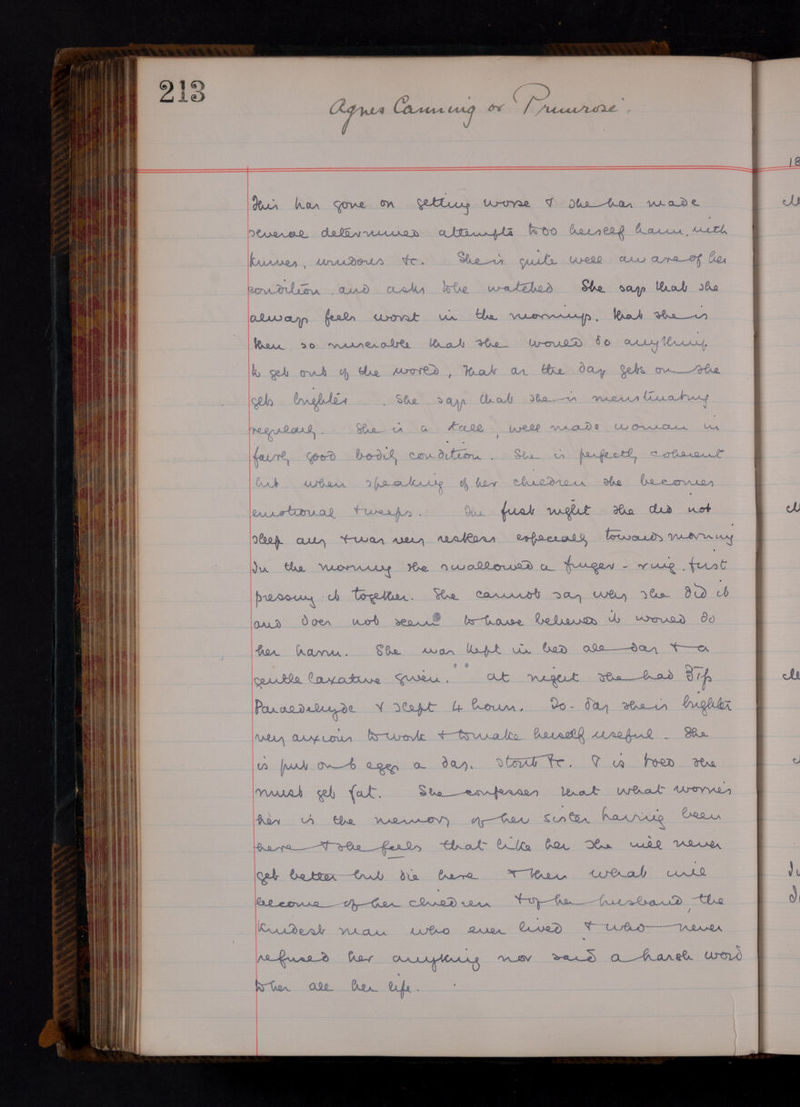 213
Agnes Canning or Primrose.
18
This has gone on getting worse & she has made
several determined attempts to do herself harm, with
knives, windows &c. She is quite well aware of her
condition and asks to be watched She says that she
always feels worst in the mornings, that she is
then so miserable that she would do anything
to get out of the world, that as the day gets on she
gets brighter. She says that she is menstruating
regularly. She is a tall, well made woman in
fairly good bodily condition. She is perfectly coherent
but when speaking of her children she becomes
emotional & weeps. The first night she did not
sleep any & was very restless especially towards morning
In the morning she swallowed a finger-ring, first
pressing it together. She cannot say why she did it
and does not seem to have believed it would do
her harm. She was kept in bed all day & a
gentle laxative given. At night she had
Paraldehyde & slept 4 hours. To-day she is brighter
very anxious to work & to make herself useful. She
is put on 6 eggs a day, stout &c. & is told she
must get fat. She confesses that what worries
her is the memory of her sister having been
here & she feels that like her she will never
get better but die here & then what will
become of her children & of her husband, the
kindest man who ever lived & who never
refused her anything nor said a harsh word
to her all her life.